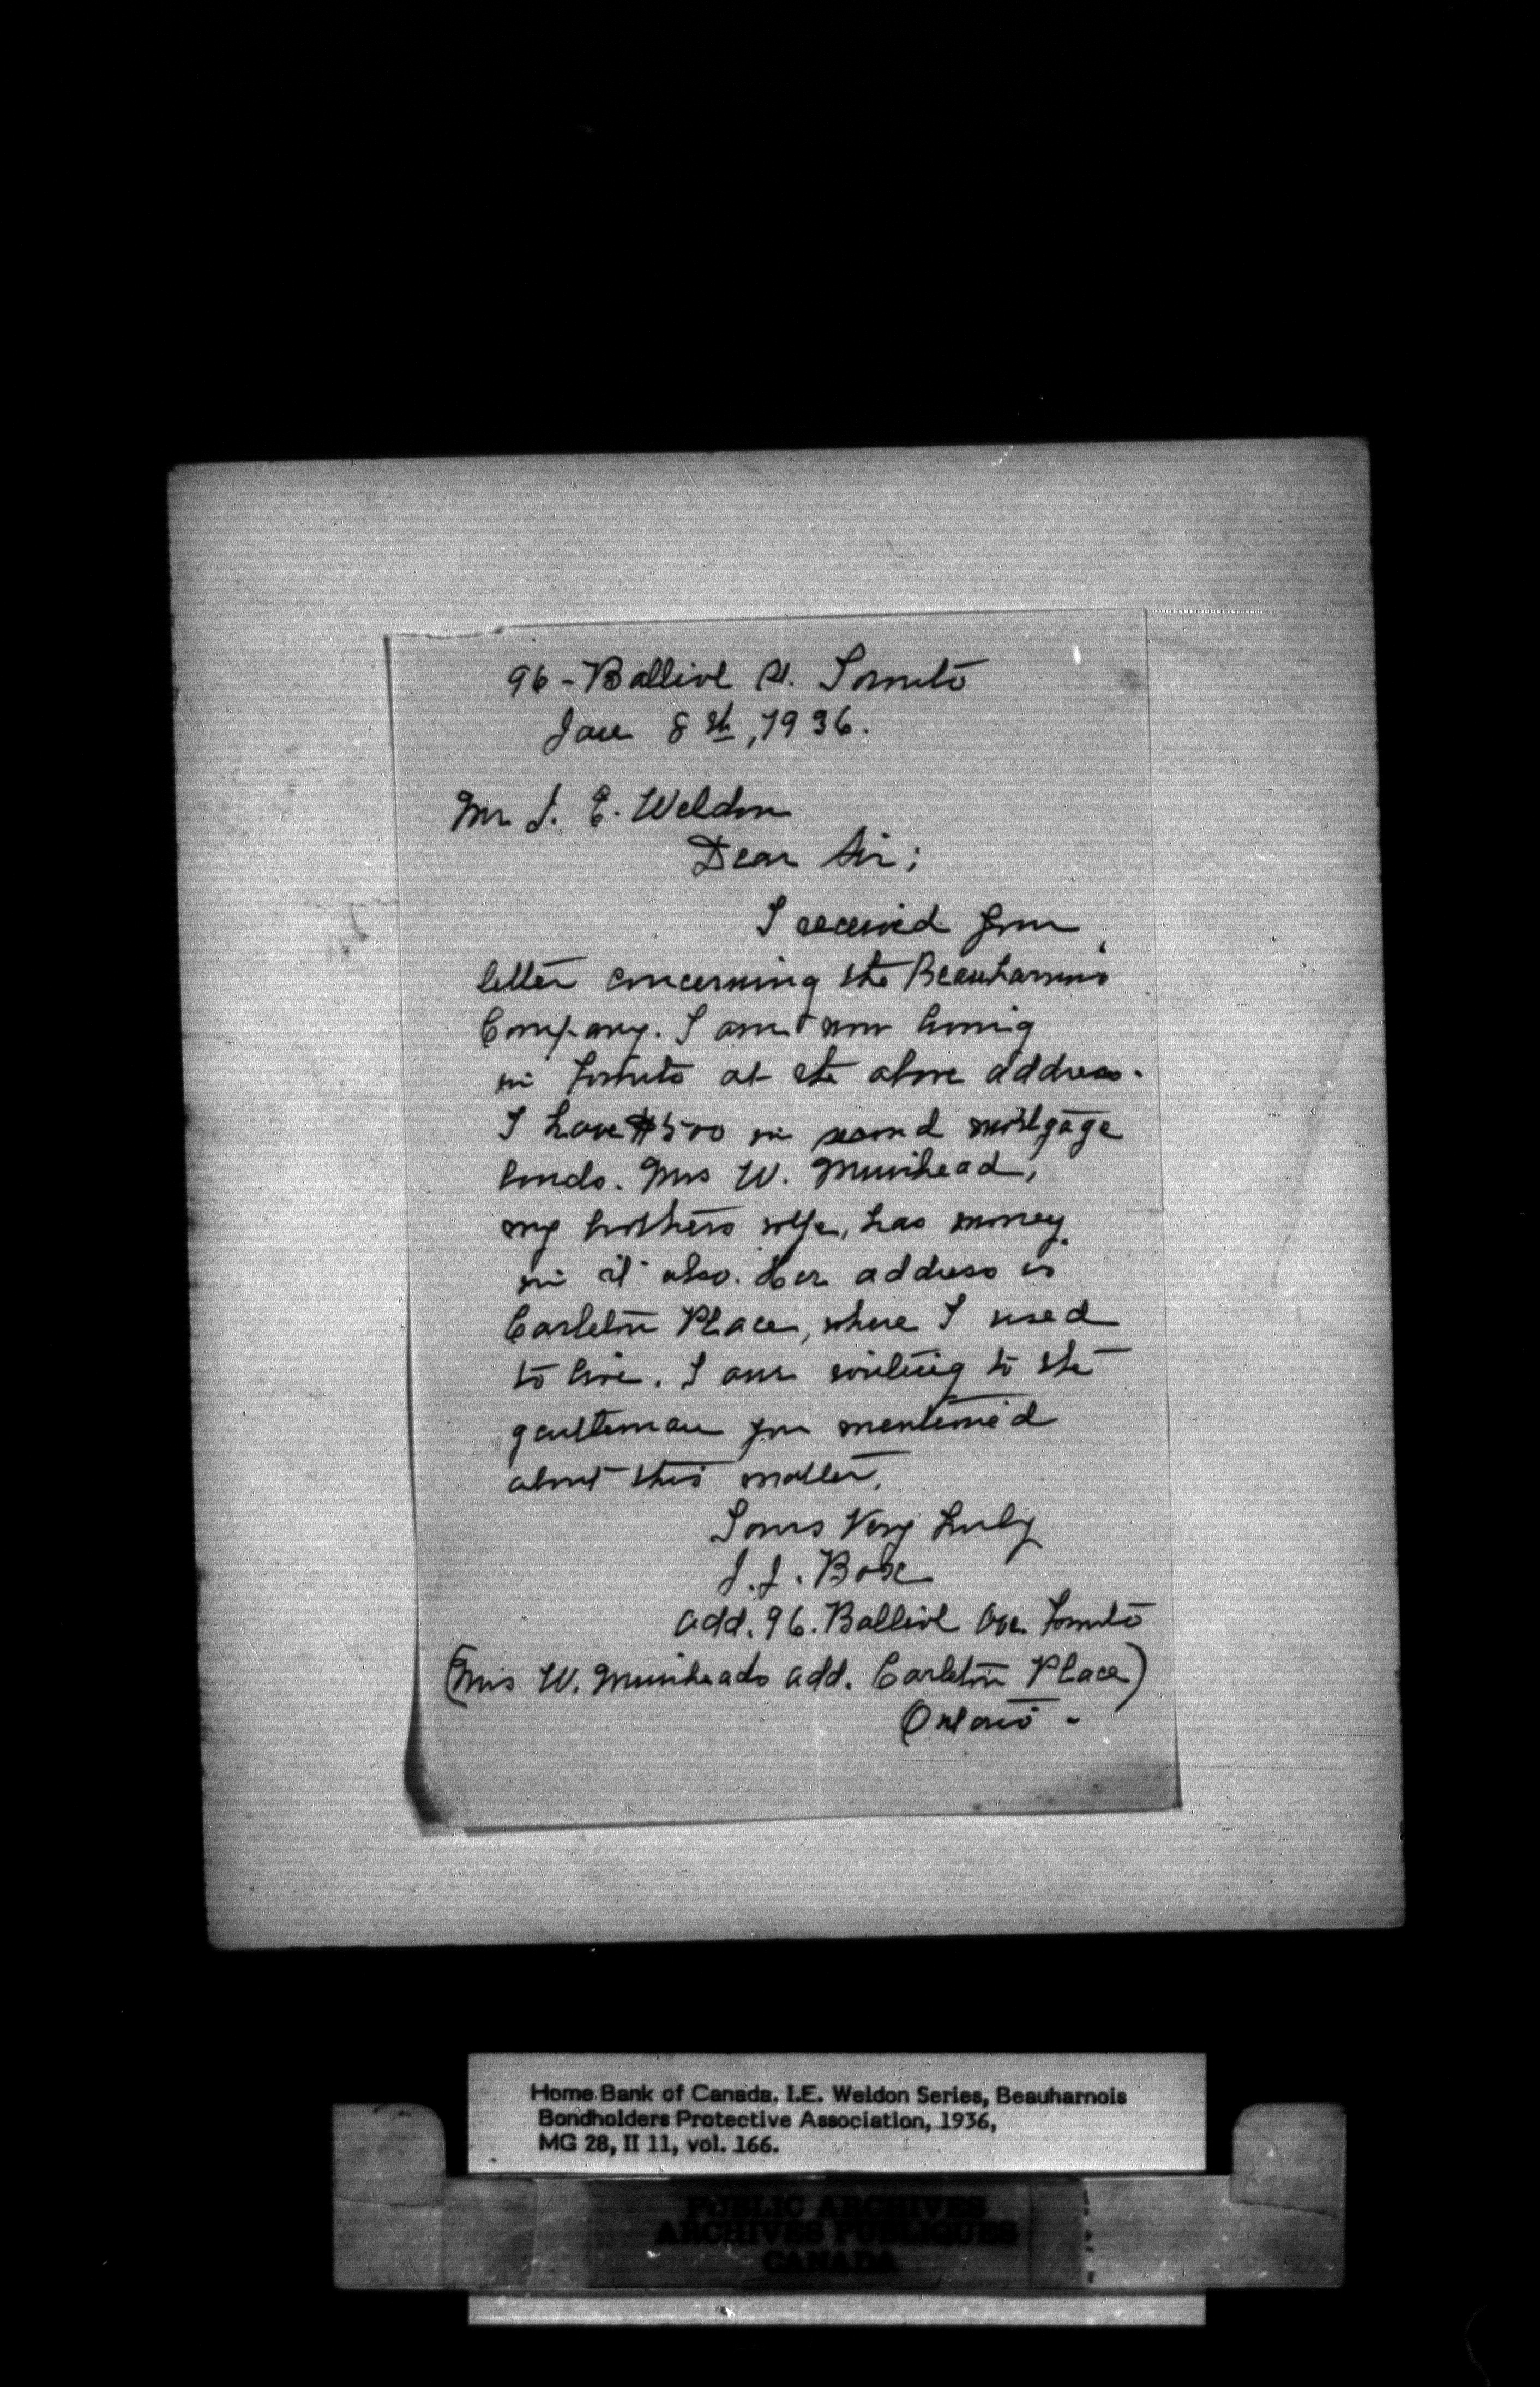 96 - Balliol St. Toronto
Jan 8th, 1936.
Mr I. E. Weldon
Dear Sir;
I received your
letter concerning the Beauharnois
Company. I am now living
in Toronto at the above address.
I have $500 in second mortgage
bonds. Mrs W. Muirhead,
my brothers wife, has money
in it also. Her address is
Carleton Place, where I used
to live. I am writing to the
gentleman you mentioned
about this matter.
Yours Very Truly
add. 96. Balliol Ave Toronto
(Mrs W. Muirheads add. Carleton Place)
Ontario -
Home Bank of Canada. I.E. Weldon Series, Beauharnois
Bondholders Protective Association, 1936,
MG 28, II 11, vol. 166.
PUBLIC ARCHIVES
ARCHIVES PUBLIQUES
CANADA